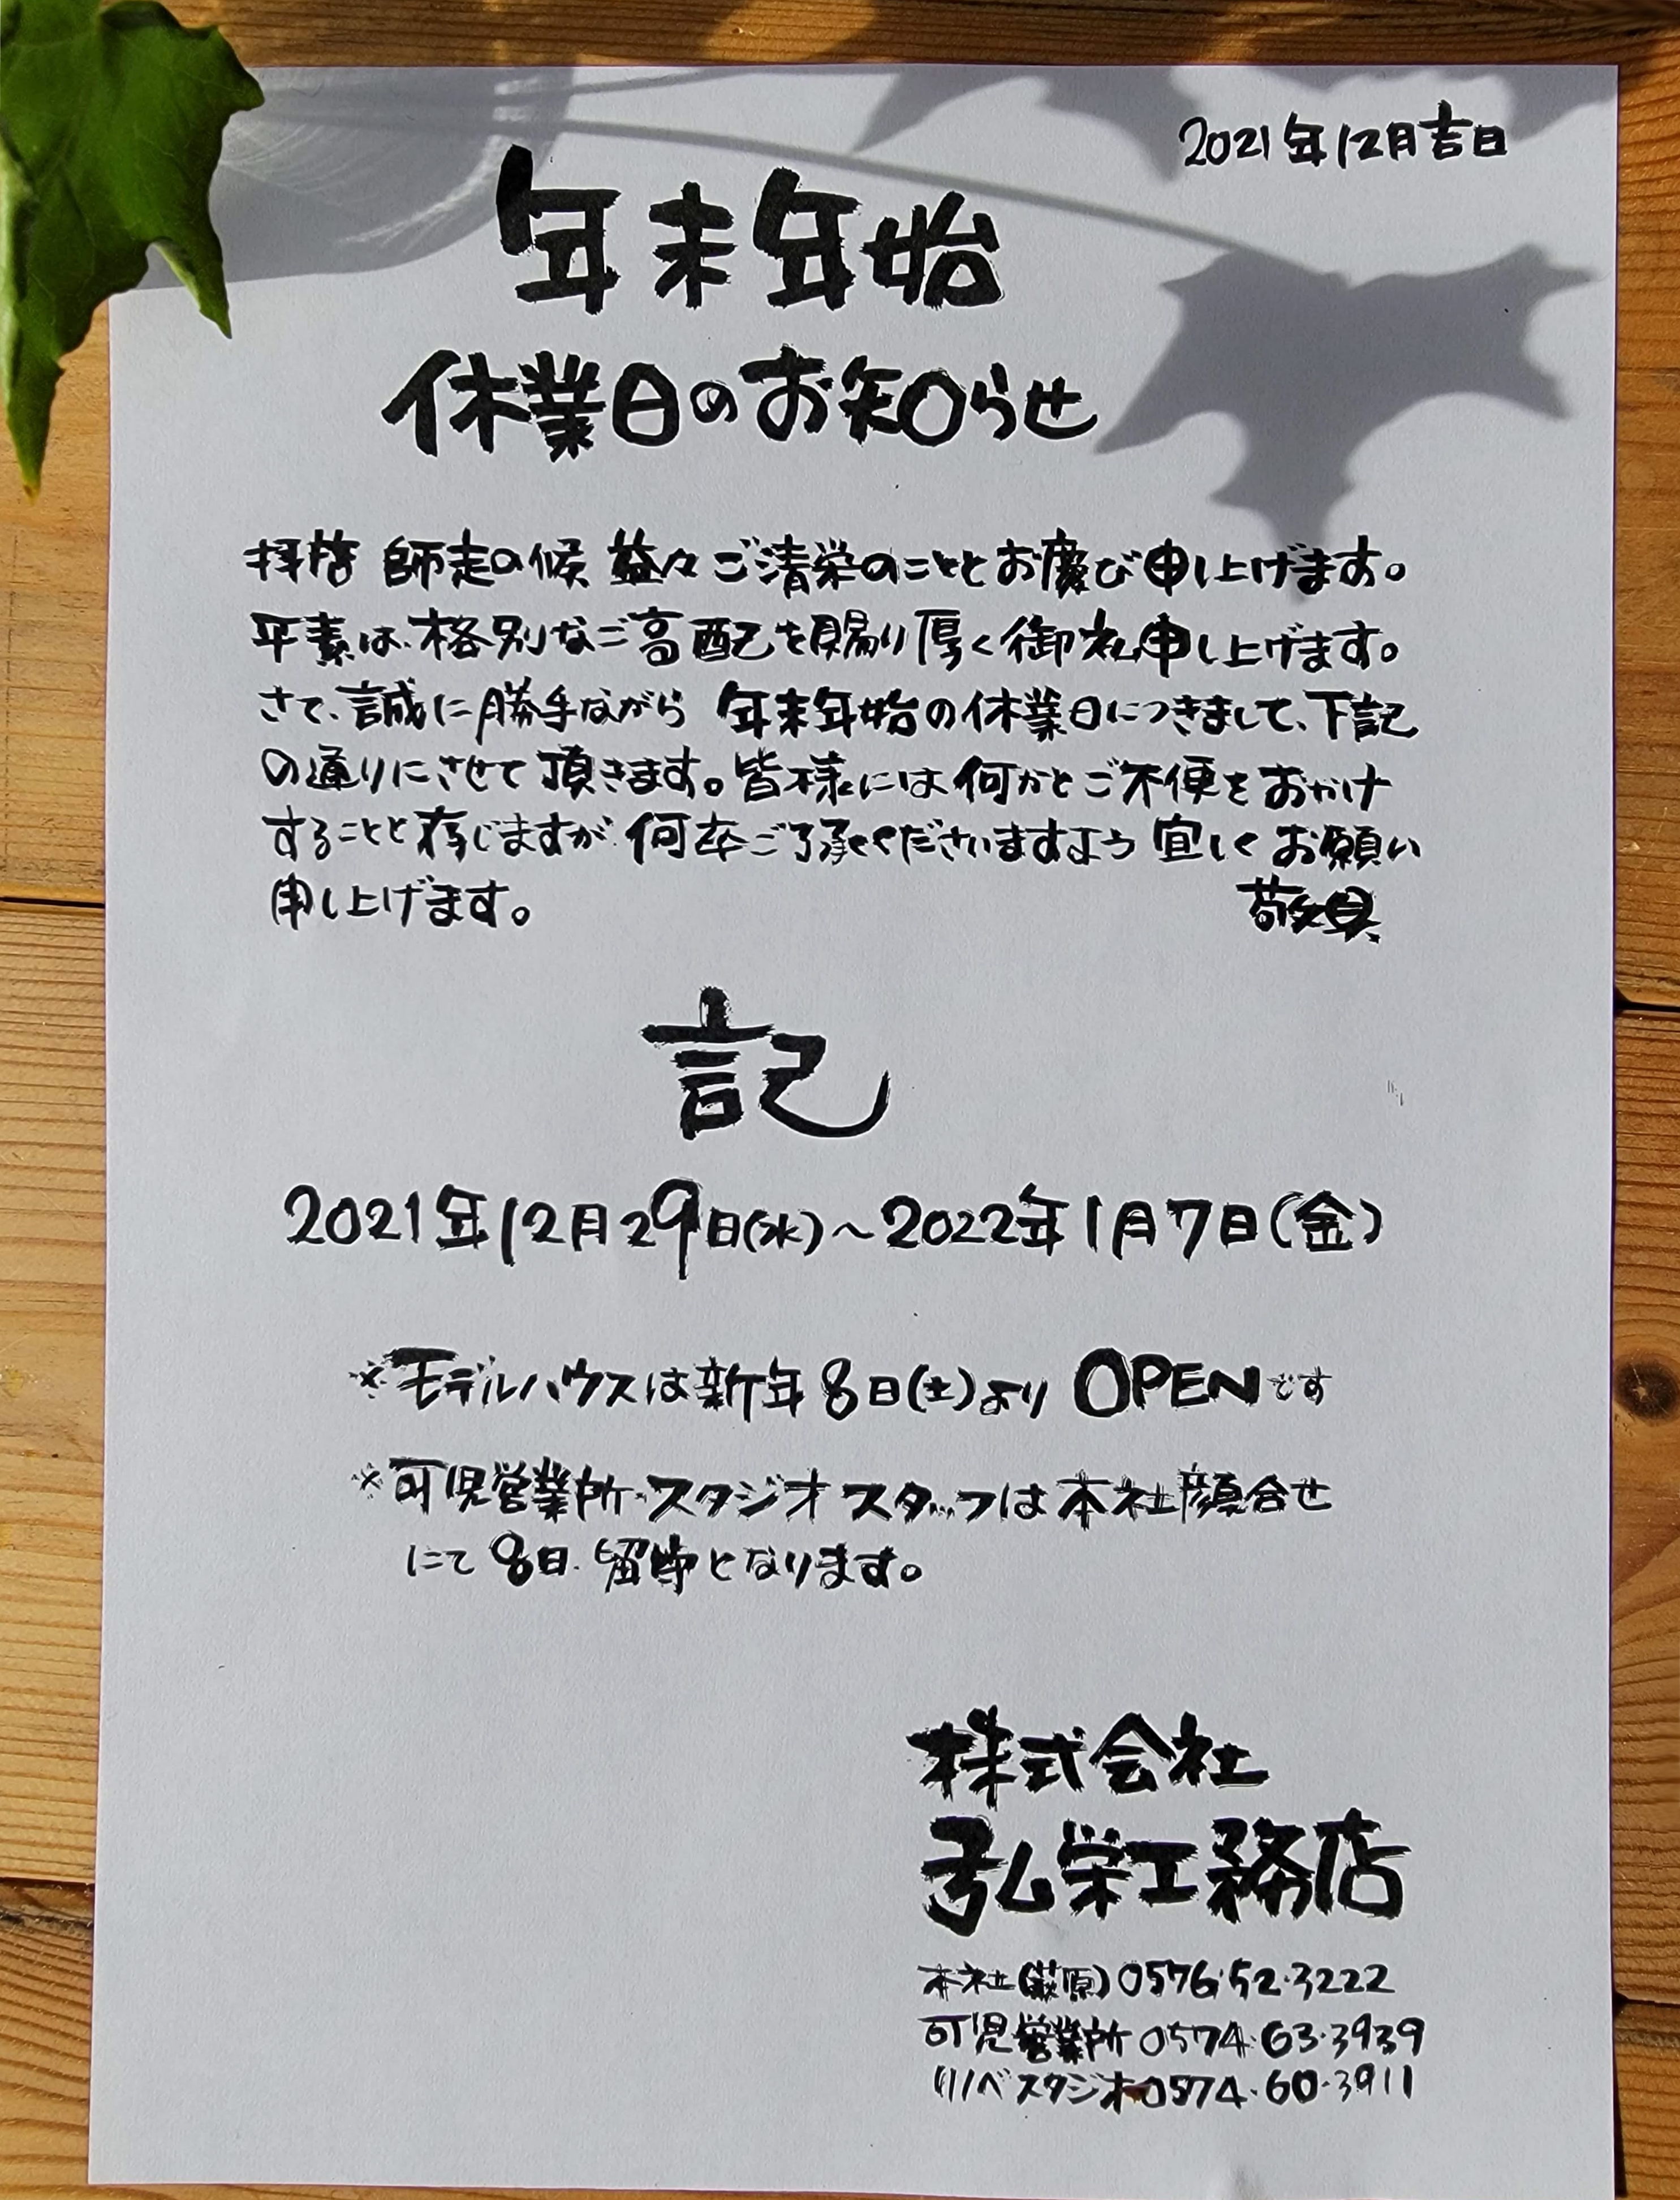 2021年12月吉日
年末年始
休業日のお知らせ
拝啓 師走の候 益々ご清栄のこととお慶び申し上げます。
平素は、格別なご高配を賜り厚く御礼申し上げます。
さて、誠に勝手ながら 年末年始の休業日につきまして、下記
の通りにさせて頂きます。皆様には何かとご不便をおかけ
することと存じますが 何卒ご了承くださいますよう 宜しくお願い
申し上げます。 敬具
記
2021年12月29日(水)～2022年1月7日(金)
※モデルハウスは新年8日(土)より OPENです
※可児営業所・スタジオスタッフは本社顔合せ
にて8日、留守となります。
株式会社
弘栄工務店
本社(萩原)0576・52・3222
可児営業所 0574・63・3939
リノベスタジオ0574・60・3911